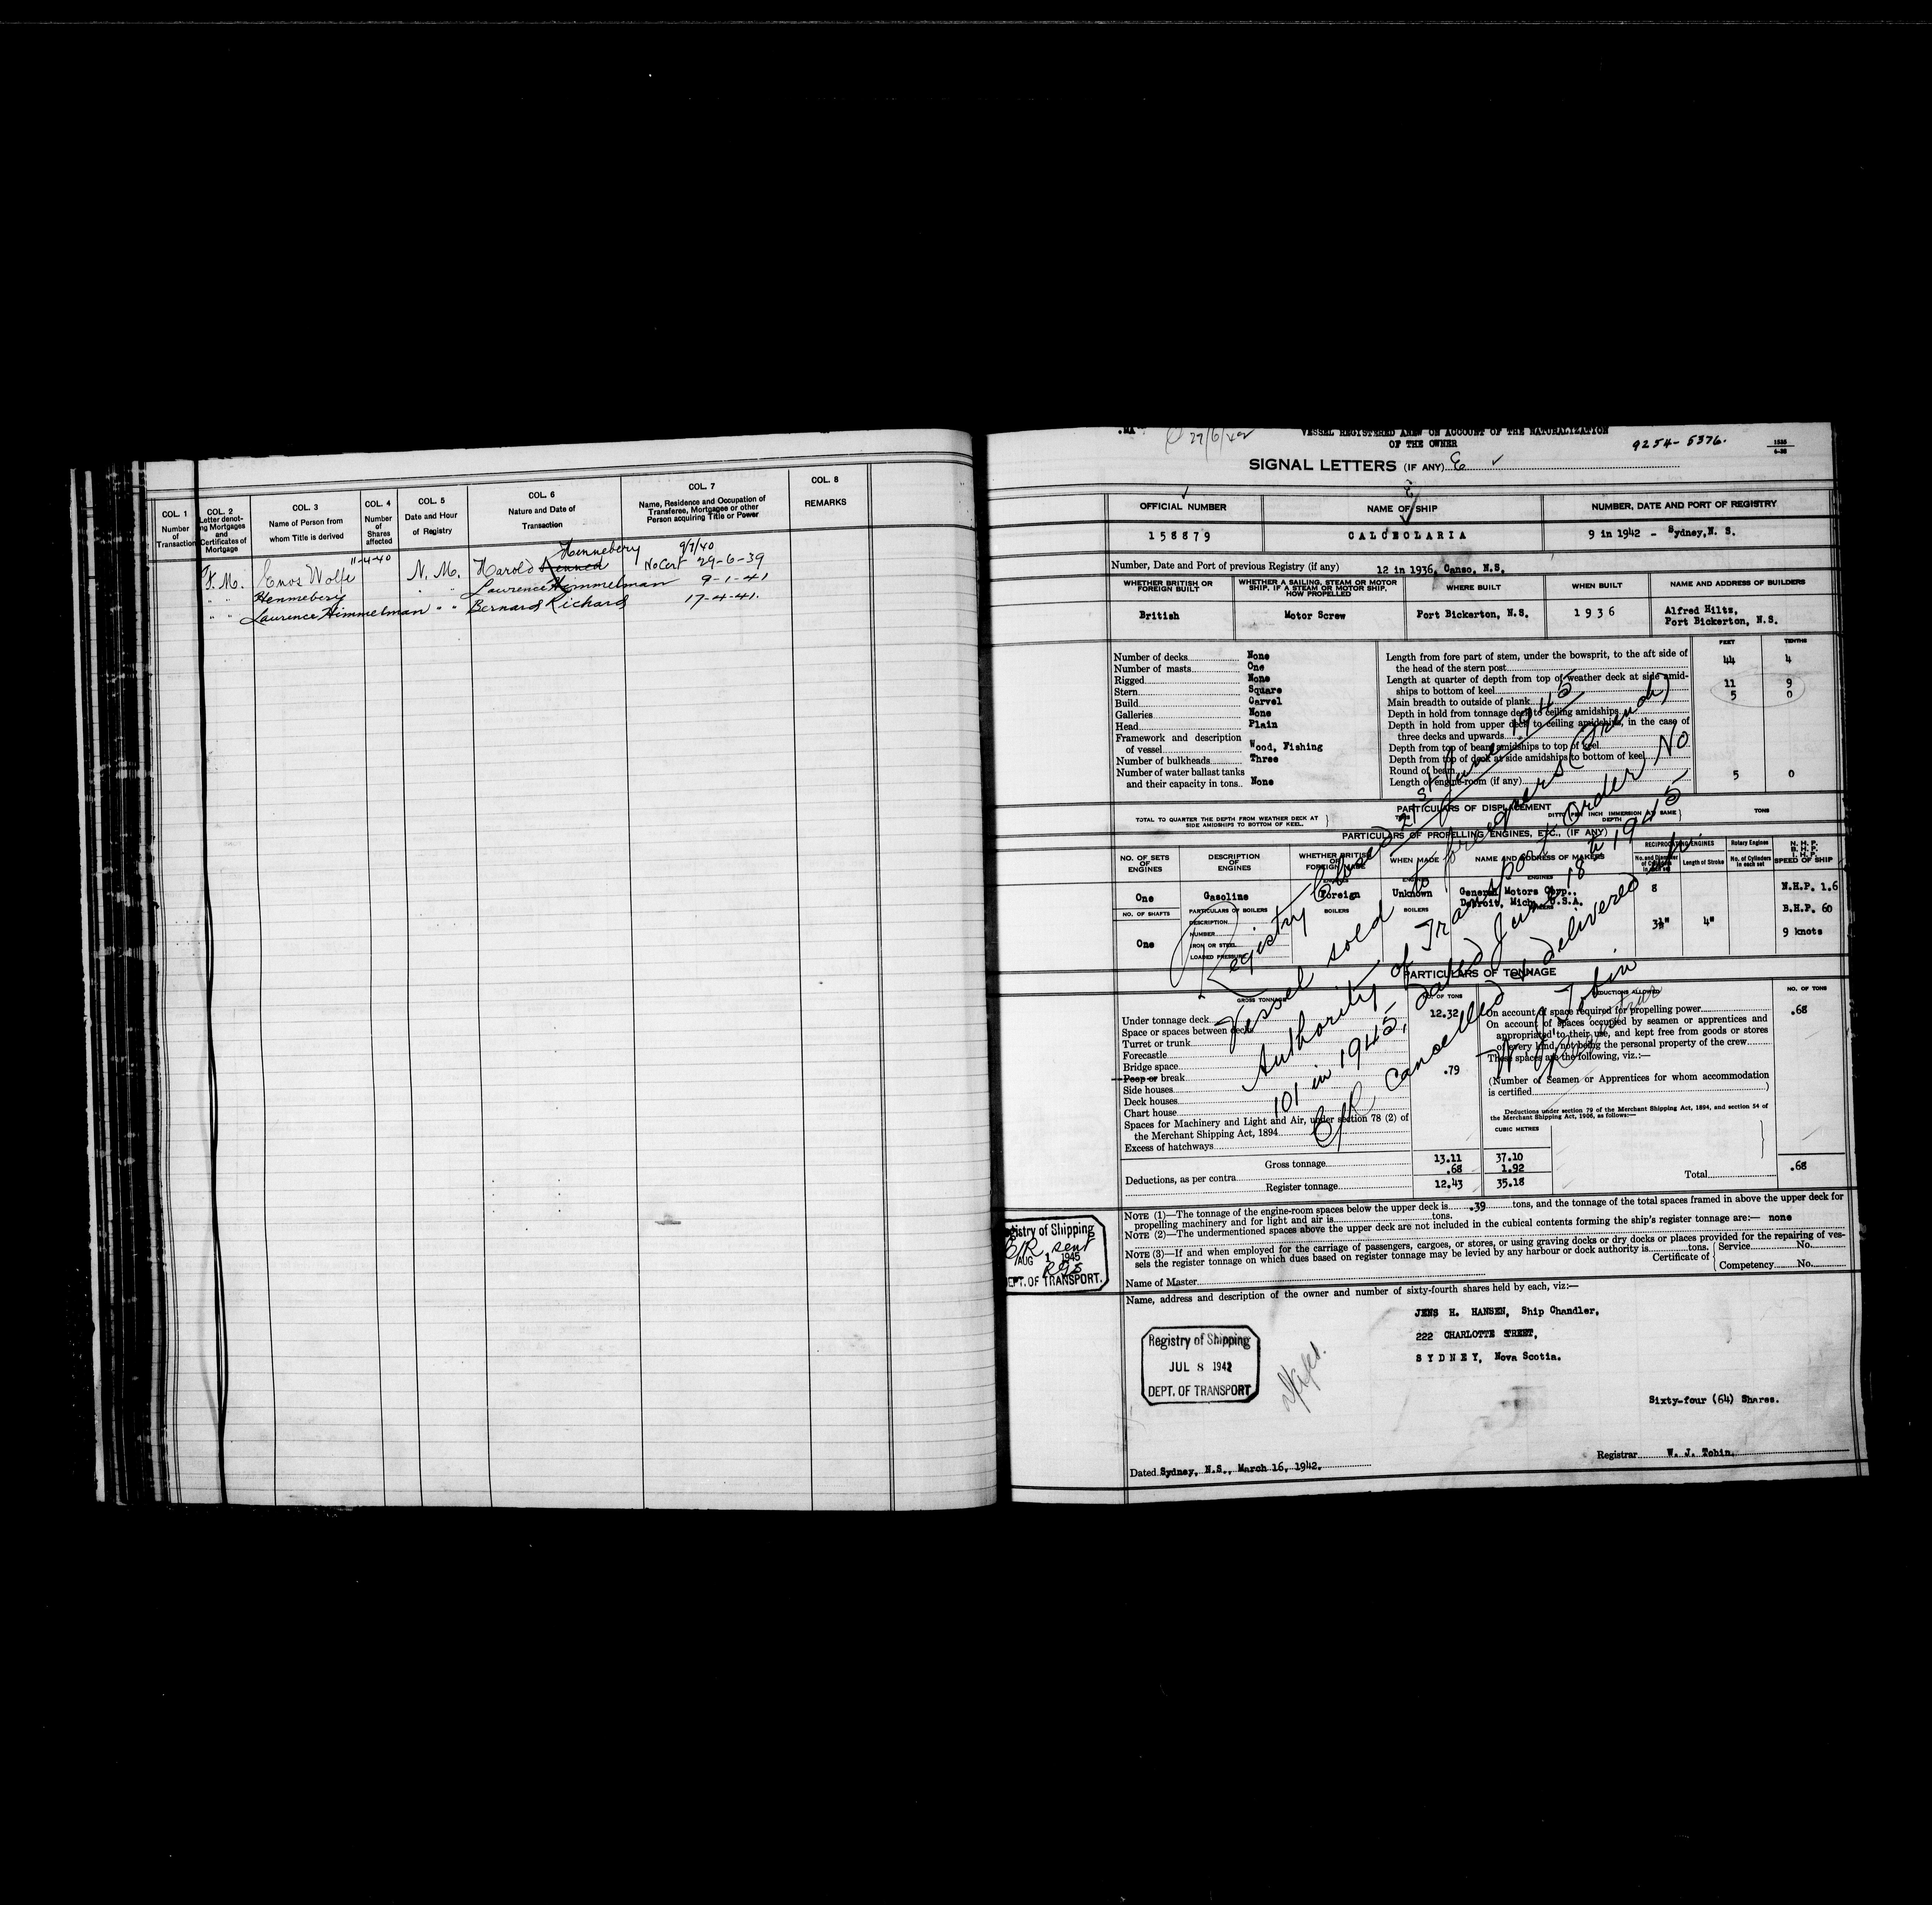 COL. 1
Number
of
Transaction
COL. 2
Letter denot-
ng Mortgages
and
Certificates of
Mortgage
COL. 3
Name of Person from
whom Title is derived
COL. 4
Number
of
Shares
affected
COL. 5
Date and Hour
of Registry
COL. 6
Nature and Date of
Transaction
COL. 7
Name, Residence and Occupation of
Transferee, Mortgagee or other
Person acquiring Title or Power
COL. 8
REMARKS
Hennebery 9/7/40
F.M. Enos Wolfe 11-4-40 N.M. Harold No Cert 29-6-39
" " Hennebery " " Laurence Himmelman 9-1-41
" " Laurence Himmelman " " Bernard Richard 17-4-41.
27/6/42
VESSEL REGISTERED ANEW ON ACCOUNT OF THE NATURALIZATION
OF THE OWNER
9254-5376.
SIGNAL LETTERS (IF ANY)
OFFICIAL NUMBER
NAME OF SHIP
NUMBER, DATE AND PORT OF REGISTRY
158879
CALCEOLARIA
9 in 1942 - Sydney, N. S.
Number, Date and Port of previous Registry (if any) 12 in 1936, Canso, N.S.
WHETHER BRITISH OR
FOREIGN BUILT
WHETHER A SAILING, STEAM OR MOTOR
SHIP, IF A STEAM OR MOTOR SHIP,
HOW PROPELLED
WHERE BUILT
WHEN BUILT
NAME AND ADDRESS OF BUILDERS
British
Motor Screw
Port Bickerton, N.S.
1936
Alfred Hiltz,
Port Bickerton, N.S.
FEET TENTHS
Number of decks None
Number of masts One
Rigged None
Stern Square
Build Carvel
Galleries None
Head Plain
Framework and description
of vessel Wood, Fishing
Number of bulkheads Three
Number of water ballast tanks
and their capacity in tons None
Length from fore part of stem, under the bowsprit, to the aft side of
the head of the stern post 44 4
Length at quarter of depth from top of weather deck at side amid-
ships to bottom of keel
Main breadth to outside of plank 11 9
Depth in hold from tonnage deck to ceiling amidships 5 0
Depth in hold from upper deck to ceiling amidships, in the case of
three decks and upwards
Depth from top of beam amidships to top of keel
Depth from top of deck at side amidships to bottom of keel
Round of beam
Length of engine-room (if any) 5 0
PARTICULARS OF DISPLACEMENT
TOTAL TO QUARTER THE DEPTH FROM WEATHER DECK AT
SIDE AMIDSHIPS TO BOTTOM OF KEEL.
DITTO PER INCH IMMERSION AT SAME
DEPTH
TONS
PARTICULARS OF PROPELLING ENGINES, ETC., (IF ANY)
NO. OF SETS
OF
ENGINES
DESCRIPTION
OF
ENGINES
WHETHER BRITISH
OR
FOREIGN MADE
WHEN MADE
NAME AND ADDRESS OF MAKERS
RECIPROCATING ENGINES
No. and Diameter
of Cylinders
in each set
Length of Stroke
Rotary Engines
No. of Cylinders
in each set
N. H. P.
B. H. P.
I. H. P.
SPEED OF SHIP
ENGINES
One
Gasoline
Foreign
Unknown
General Motors Corp.,
Detroit, Mich., U.S.A.
8
N.H.P. 1.6
B.H.P. 60
9 knots
NO. OF SHAFTS
One
PARTICULARS OF BOILERS
DESCRIPTION
NUMBER
IRON OR STEEL
LOADED PRESSURE
BOILERS
BOILERS
BOILERS
3½"
4"
Registry Closed 21st June 1945
Vessel sold to foreigners (French)
Authority of Transport Order No
101 in 1945, dated June 18th 1945
C/R cancelled & delivered up.
W J Tobin
Registrar
PARTICULARS OF TONNAGE
GROSS TONNAGE
NO. OF TONS
DEDUCTIONS ALLOWED
NO. OF TONS
Under tonnage deck 12.32
Space or spaces between decks
Turret or trunk
Forecastle
Bridge space
Poop or break .79
Side houses
Deck houses
Chart house
Spaces for Machinery and Light and Air, under section 78 (2) of
the Merchant Shipping Act, 1894
Excess of hatchways
Gross tonnage 13.11 37.10
Deductions, as per contra .68 1.92
Register tonnage 12.43 35.18
On account of space required for propelling power .68
On account of spaces occupied by seamen or apprentices and
appropriated to their use, and kept free from goods or stores
of every kind, not being the personal property of the crew
These spaces are the following, viz.:—
(Number of Seamen or Apprentices for whom accommodation
is certified )
Deductions under section 79 of the Merchant Shipping Act, 1894, and section 54 of
the Merchant Shipping Act, 1906, as follows:—
CUBIC METRES
Total .68
NOTE (1)—The tonnage of the engine-room spaces below the upper deck is .39 tons, and the tonnage of the total spaces framed in above the upper deck for
propelling machinery and for light and air is tons.
NOTE (2)—The undermentioned spaces above the upper deck are not included in the cubical contents forming the ship's register tonnage are:— none
NOTE (3)—If and when employed for the carriage of passengers, cargoes, or stores, or using graving docks or dry docks or places provided for the repairing of ves-
sels the register tonnage on which dues based on register tonnage may be levied by any harbour or dock authority is tons.
Certificate of { Service No.
Competency No.
Name of Master
Name, address and description of the owner and number of sixty-fourth shares held by each, viz:—
gistry of Shipping
C/R sent
AUG 1 1945
EPT. OF TRANSPORT.
JENS H. HANSEN, Ship Chandler,
222 CHARLOTTE STREET,
SYDNEY, Nova Scotia.
Registry of Shipping
JUL 8 1942
DEPT. OF TRANSPORT
Sixty-four (64) Shares.
Registrar W. J. Tobin.
Dated Sydney, N.S., March 16, 1942.